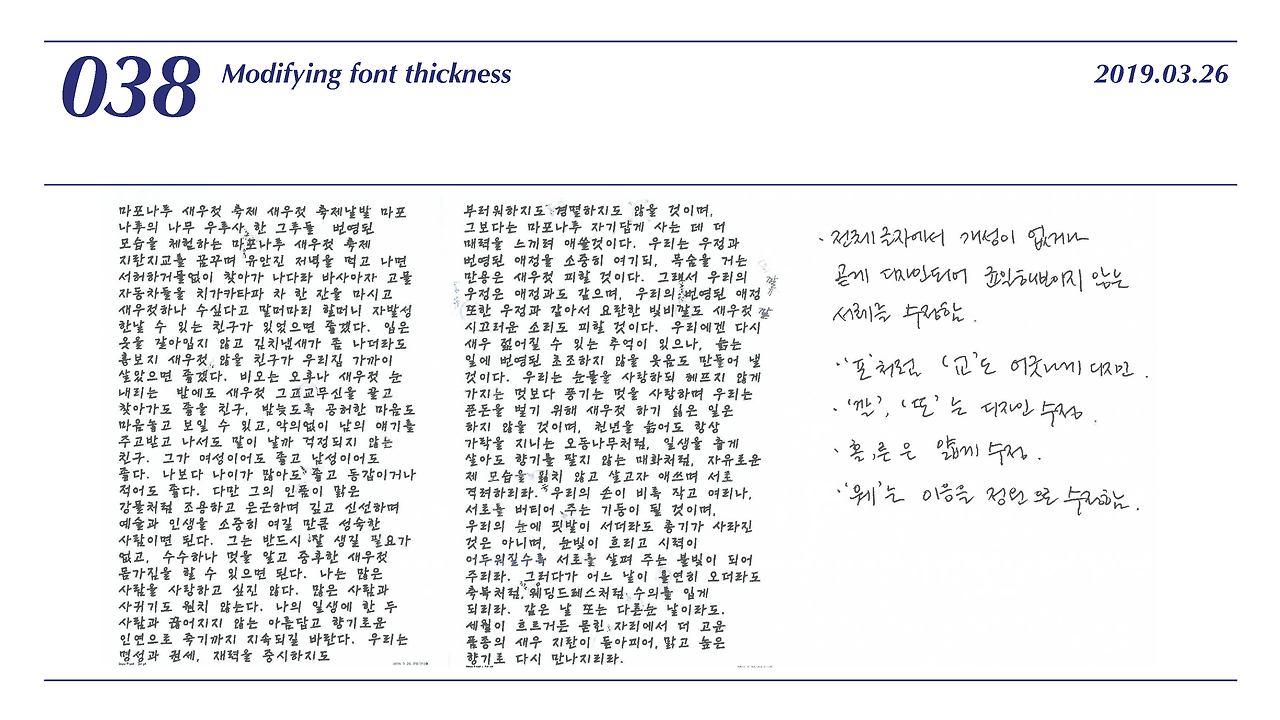 038 Modifying font thickness
2019.03.26
마포나루 새우젓 축제 새우젓 축제날발 마포
나루의 나무 우루사 한 그루들 번영된
모습을 체험하는 마포나루 새우젓 축제
지란지교를 꿈꾸며 유안진 저녁을 먹고 나면
서허하거물없이 찾아가 나다라 바사아자 고물
자동차들을 치가카타파 차 한 잔을 마시고
새우젓하나 수싶다고 말머마리 할머니 자발성
한날 수 있는 친구가 있었으면 좋겠다. 입은
옷을 갈아입지 않고 김치냄새가 좀 나더라도
흉보지 새우젓 않을 친구가 우리집 가까이
살았으면 좋겠다. 비오는 오후나 새우젓 눈
내리는 밤에도 새우젓 그교교무신을 끌고
찾아가도 좋을 친구, 밤늦도록 공허한 마음도
마음놓고 보일 수 있고, 악의없이 남의 얘기를
주고받고 나서도 말이 날까 걱정되지 않는
친구. 그가 여성이어도 좋고 남성이어도
좋다. 나보다 나이가 많아도 좋고 동갑이거나
적어도 좋다. 다만 그의 인품이 맑은
강물처럼 조용하고 은근하며 깊고 신선하며
예술과 인생을 소중히 여길 만큼 성숙한
사람이면 된다. 그는 반드시 잘 생길 필요가
없고, 수수하나 멋을 알고 중후한 새우젓
몸가짐을 할 수 있으면 된다. 나는 많은
사람을 사랑하고 싶진 않다. 많은 사람과
사귀기도 원치 않는다. 나의 일생에 한 두
사람과 끊어지지 않는 아름답고 향기로운
인연으로 죽기까지 지속되길 바란다. 우리는
명성과 권세, 재력을 중시하지도
부러워하지도 경멸하지도 않을 것이며,
그보다는 마포나루 자기답게 사는 데 더
매력을 느끼려 애쓸것이다. 우리는 우정과
번영된 애정을 소중히 여기되, 목숨을 거는
만용은 새우젓 피할 것이다. 그래서 우리의
우정은 애정과도 같으며, 우리의 번영된 애정
또한 우정과 같아서 요란한 빛비깔도 새우젓
시끄러운 소리도 피할 것이다. 우리에겐 다시
새우 젊어질 수 있는 추억이 있으나, 늙는
일에 번영된 초조하지 않을 웃음도 만들어 낼
것이다. 우리는 눈물을 사랑하되 헤프지 않게
가지는 멋보다 풍기는 멋을 사랑하며 우리는
푼돈을 벌기 위해 새우젓 하기 싫은 일은
하지 않을 것이며, 천년을 늙어도 항상
가락을 지니는 오동나무처럼, 일생을 춥게
살아도 향기를 팔지 않는 매화처럼, 자유로운
제 모습을 잃지 않고 살고자 애쓰며 서로
격려하리라. 우리의 손이 비록 작고 여리나,
서로를 버티어 주는 기둥이 될 것이며,
우리의 눈에 핏발이 서더라도 총기가 사라진
것은 아니며, 눈빛이 흐리고 시력이
어두워질수록 서로를 살펴 주는 불빛이 되어
주리라. 그러다가 어느 날이 홀연히 오더라도
축복처럼, 웨딩드레스처럼 수의를 입게
되리라. 같은 날 또는 다른눈 날이라도.
세월이 흐르거든 묻힌 자리에서 더 고운
품종의 새우 지란이 돋아피어, 맑고 높은
향기로 다시 만나지리라.
· 전체 글자에서 개성이 없거나
곧게 디자인되어 균일해보이지 않는
서체를 수정함.
· '포'처럼 '교'도 어긋나게 디자인.
· '깐', '또'는 디자인 수정.
· 홀, 른 은 얇게 수정.
· '웨'는 이응을 정원으로 수정함.